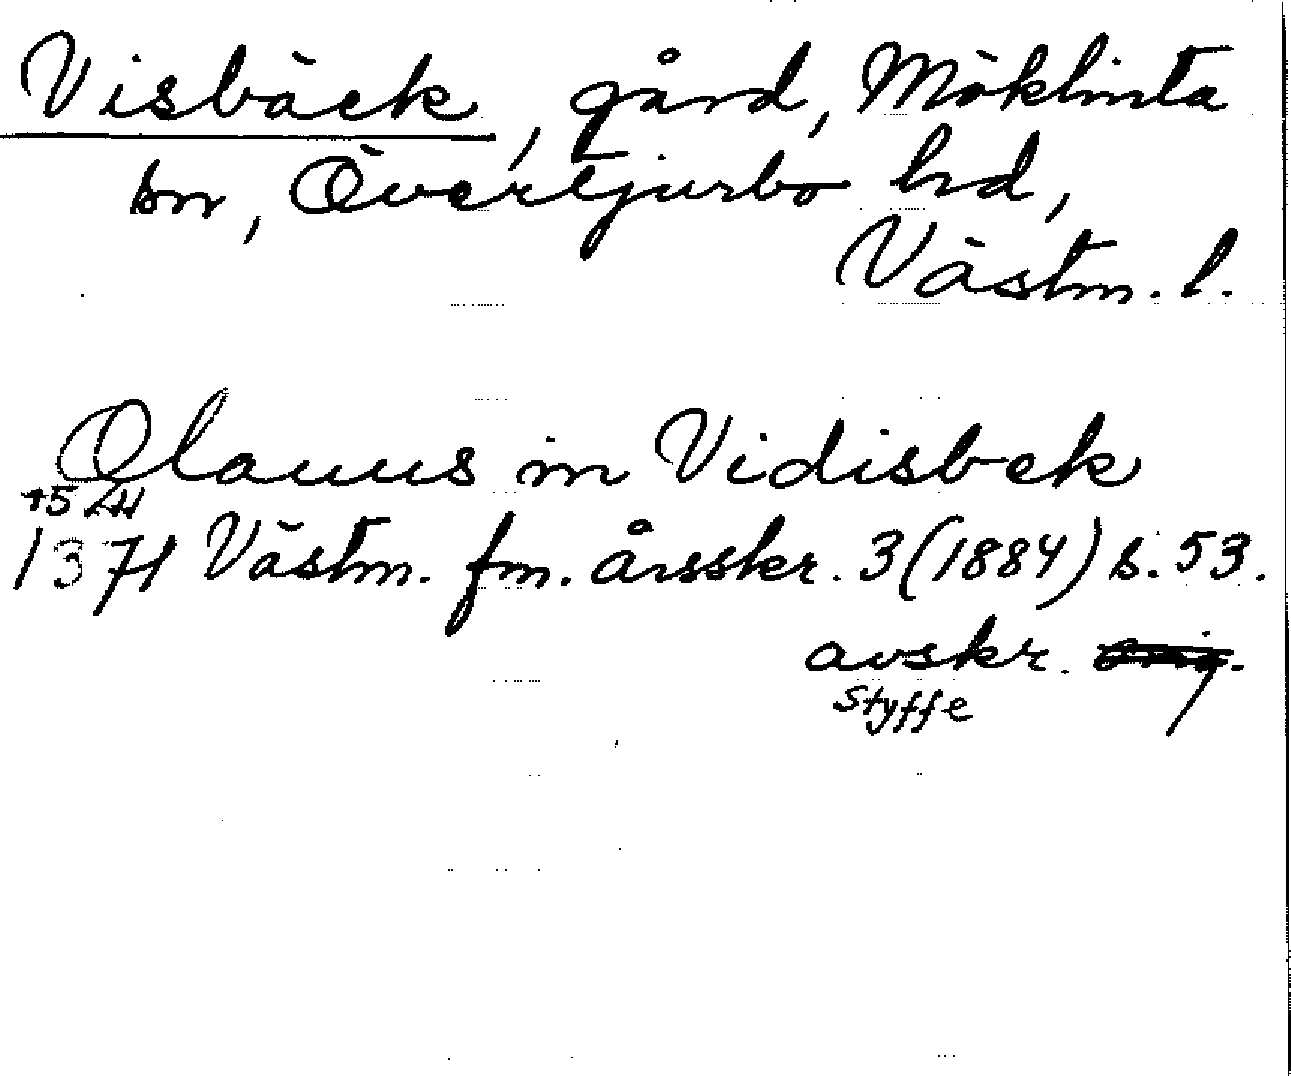 Visbäck, gård, Möklinta
sn, Övertjurbo hd,
Västm. l.
Olauus in Vidisbek
1371 Västm. fm. årsskr. 3 (1884) s. 53.
avskr.
Styffe